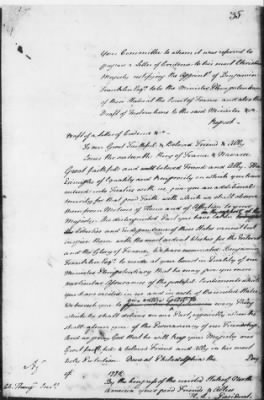 35
Your Committee to whom it was referred to
prepare a Letter of Credence to his most Christian
Majesty notifying the Appointt of Benjamin
Franklin Esqr to be the Minister Plenipotentiary
of these States at the Court of France and also the
Draft of Instructions to the said Minister
Report
Draft of a Letter of Credence &c
To our Great Faithful & Beloved Friend & Ally
Louis the sixteenth King of France & Navarre
Great faithful and well beloved Friend and Ally. The
Principles of Equality and Reciprocity on which you have
entered into Treaties with us, give you an additional
security for that good Faith with which we shall observe
them from Motives of Honor and of Affection to your
Majesty. The distinguished Part you have taken in
the Liberties and Independence of these States cannot but
inspire them with the most ardent wishes for the Interest
and the Glory of France. We have nominated Benjamin
Franklin Esqr to reside at your Court in Quality of our
Minister Plenipotentiary that he may give you more
particular Assurance of the grateful Sentiments which
you have excited in us and in each of the United States
We beseech you to give entire Credit to every Thing
which he shall deliver on our Part, especially when he
shall assure you of the Permanency of our Friendship
And we pray God that he will keep your Majesty our
Great faithful & beloved Friend and Ally in his most
holy Protection. Done at Philadelphia the Day
of 1778
By the Congress of the United States of North
America your good Friends & Allies
H. L. President.